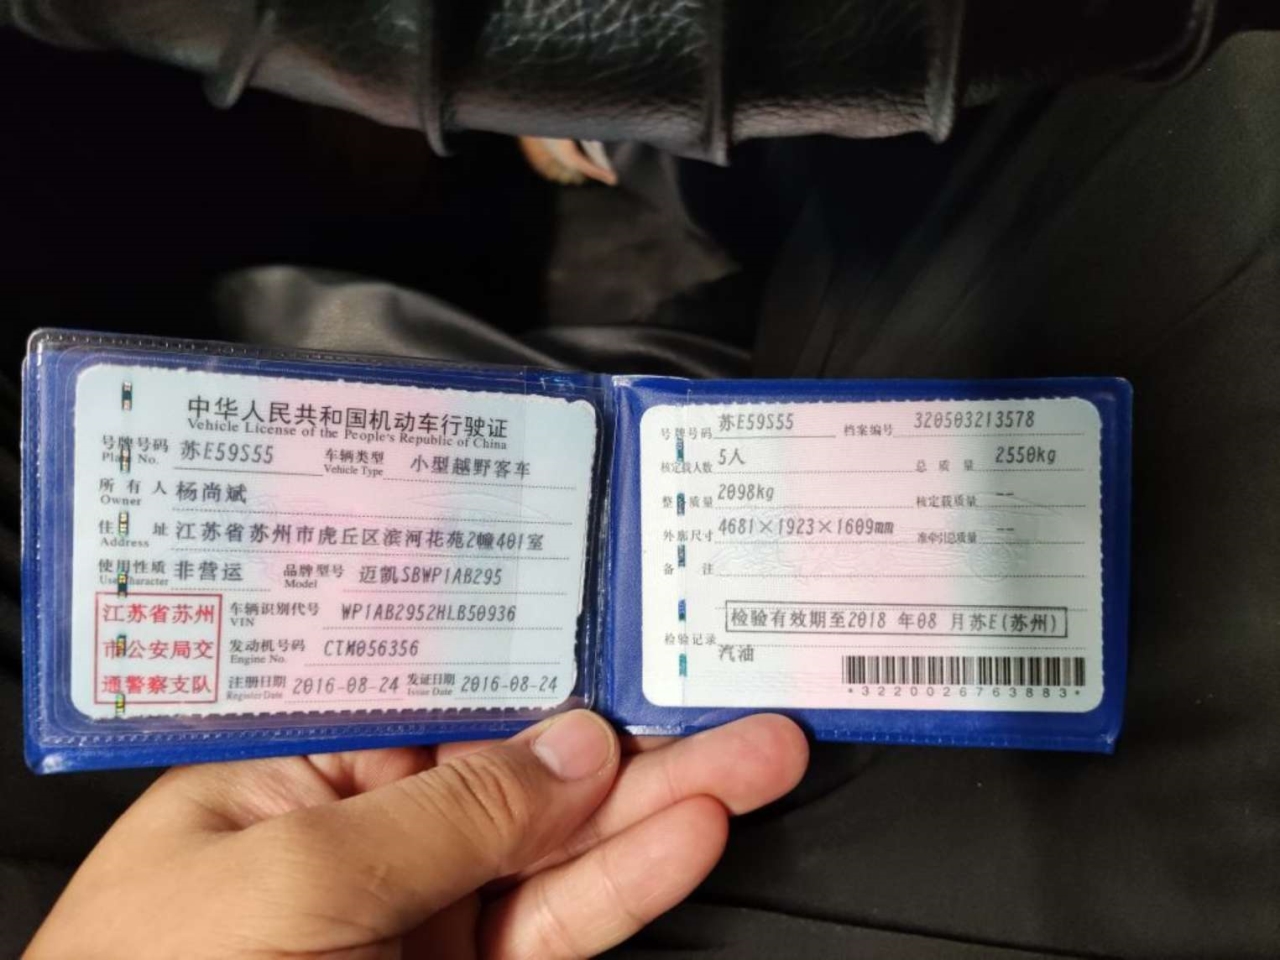 中华人民共和国机动车行驶证
Vehicle License of the People's Republic of China
号牌号码 苏E59S55 车辆类型 小型越野客车
Plate No. Vehicle Type
所有人 杨尚斌
Owner
住址 江苏省苏州市虎丘区滨河花苑2幢401室
Address
使用性质 非营运 品牌型号 迈凯SBWP1AB295
Use Character Model
江苏省苏州
市公安局交
通警察支队
车辆识别代号 WP1AB2952HLB50936
VIN
发动机号码 CTM056356
Engine No.
注册日期 2016-08-24 发证日期 2016-08-24
Register Date Issue Date
号牌号码 苏E59S55 档案编号 320503213578
核定载人数 5人 总质量 2550kg
整备质量 2098kg 核定载质量 --
外廓尺寸 4681×1923×1609mm 准牵引总质量 --
备注
检验有效期至2018年08月苏E(苏州)
检验记录
汽油
*3220026763883*